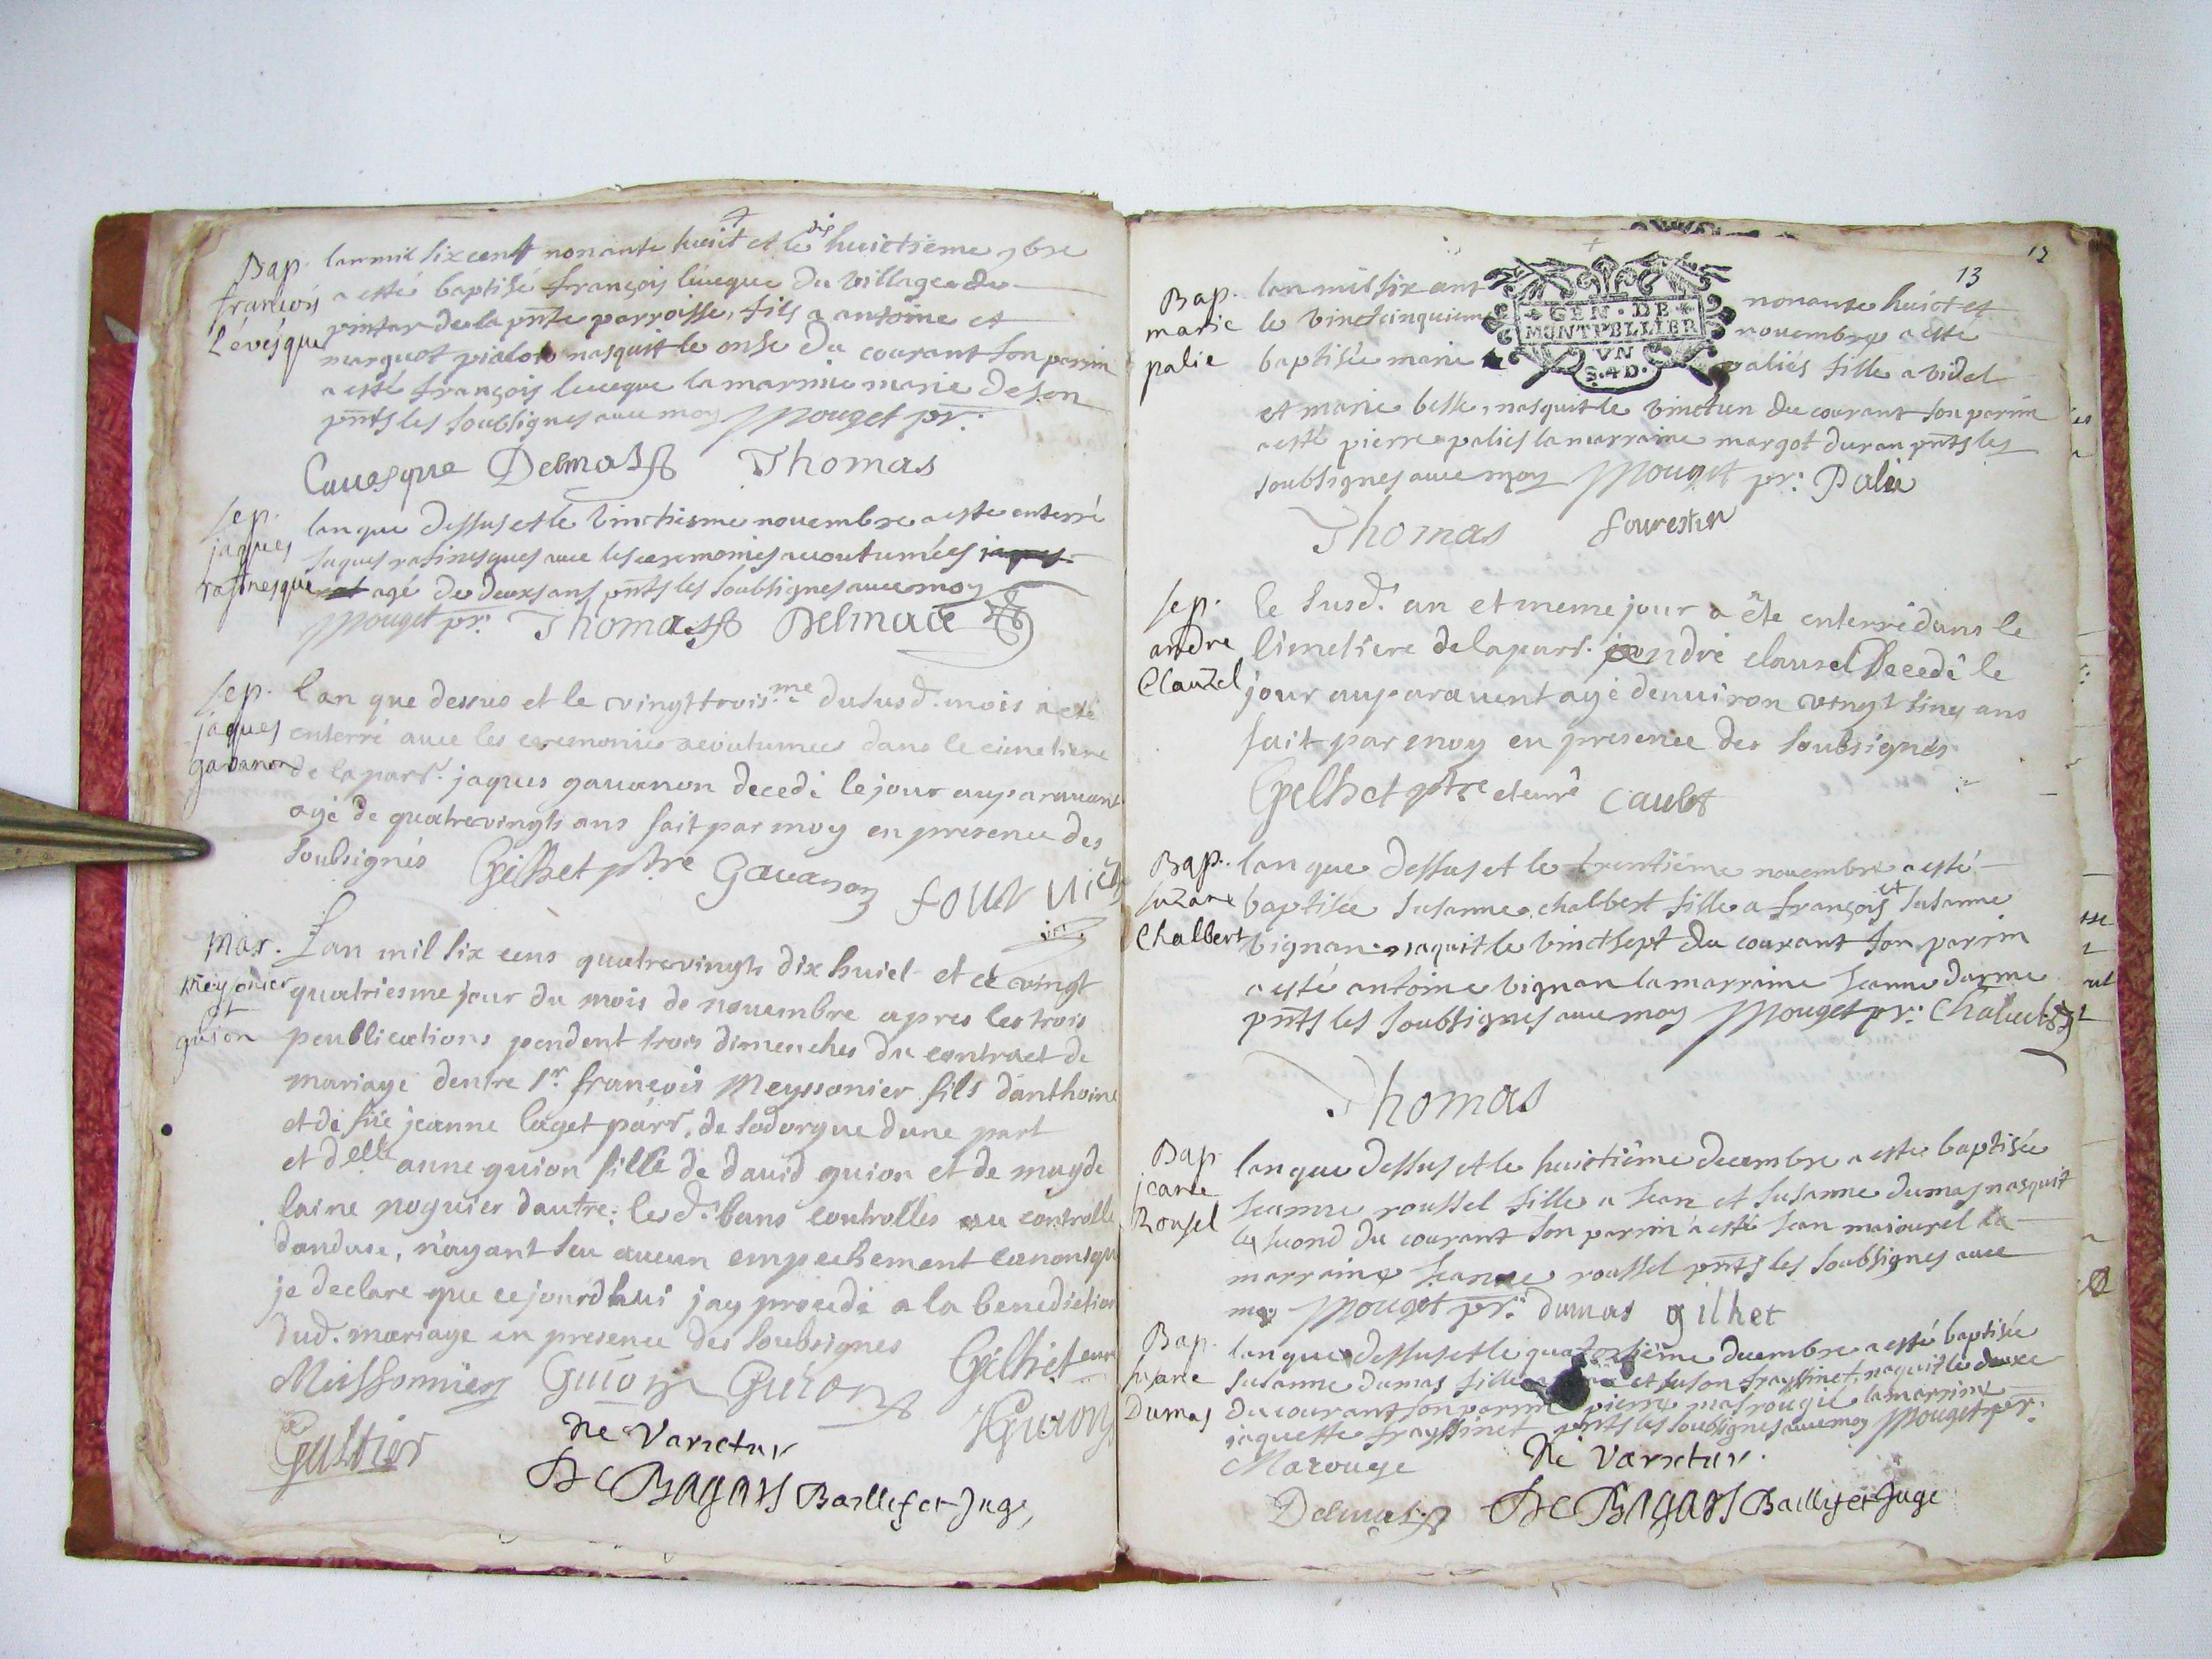 Bap. lan mil six cent nonante huict et le dix huictieme 9bre
françois a esté baptisé françois lévêque du village de
Lévésque pintar de la pnte parroisse, fils a antoine et
marguot nasquit le onse du courant son parrin
a esté françois levesque la marrine marie deson
pnts les soubsignes avec moy Mouget pr.
Cauesque Delmas Thomas
sep. lan que dessus et le vinctiesme novembre a este enterré
jaques Jaques rafinesques avec les ceremonies acoutumées
rafinesque agé de deux ans pnts les soubsignes avec moy
Mouget pr. Thomas Delmace
sep. Lan que dessus et le vingt trois.me dusud. mois a eté
jaques enterré avec les ceremonies acoutumees dans le cimetiere
gavanon de la parr. jaques gavanon decedé le jour auparavant
agé de quatrevingts ans fait par moy en presence des
soubsignés Gilhet ptre Gavanon
Mar. Lan mil six cens quatrevingts dix huict et le vingt
Meysonier quatriesme jour du mois de novembre apres les trois
et
guion peublications pendent trois dimenches du contract de
mariage dentre sr. françois Meyssonier fils danthoine
et de fue jeanne laget parr. de sodorgue dune part
et delle anne guion fille de david guion et de magde
laine noguier dautre: les d. bans controllés au controlle
danduse, n'ayant sceu aucun empechement canonique
je declare que cejourdhui jay procedé a la benediction
dud. mariage en presence des soubsignes
Meissonnier Guion Guion Gilhet curé
Gultier HGuion
Ne Varietur
De Bagars Baillif et Juge
12
13
GEN. DE
MONTPELLIER
VN
S. 4 D.
Bap. lan mil six cent nonante huict et
marie le vinctcinquieme novembre a este
palie baptisée marie paliés fille a videl
et marie besse, nasquit le vinctun du courant son parrin
a esté pierre paliés la marraine margot duran pnts les
soubsignes avec moy Mouget pr. Palie
Thomas fourestier
sep. le susd. an et meme jour a été enterré dans le
andre cimetiere de la parr. andré clausel decedé le
Clauzel jour auparavent agé denuiron vingt sinq ans
fait par moy en presence des soubsignés
Gelhet ptre et curé Caulet
Bap. lan que dessus et le trentiéme novembre a esté
suzane baptisée susanne chalbert fille a françois et susanne
Chalbert vignan naquit le vinctsept du courant son parrin
a esté antoine vignan la marraine Jeanne darme
pnts les soubsignes avec moy Mouget pr.
Thomas
Bap. lan que dessus et le huictiême decembre a este baptisée
jeane Jeanne roussel fille a Jean et susanne dumas nasquit
Rousel le second du courant son parrin a esté Jean majourel la
marraine Jeanne roussel pnts les soubsignes avec
moy Mouget pr. dumas gilhet
Bap. lan que dessus et le quatorsième decembre a esté baptisée
susane susanne dumas fille et suson frayssinet, naquit le douse
Dumas du courant son parrin pierre masrougé la marrine
jaquette frayssinet pnts les soubsignes avec moy Mouget pr.
Marouge
Ne Varietur.
Delmas De Bagars Baillif et Juge